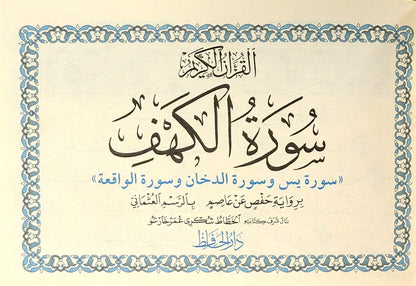 القرآن الكريم
سُورَةُ الكَهْفِ
«سورة يس وسورة الدخان وسورة الواقعة»
بِروَايَة حَفْصٍ عَنْ عَاصِمٍ بِالرَّسْمِ العُثْمَانِي
نال شرف كتابته الخطاط شكري عمر خارشو
دار الحافظ